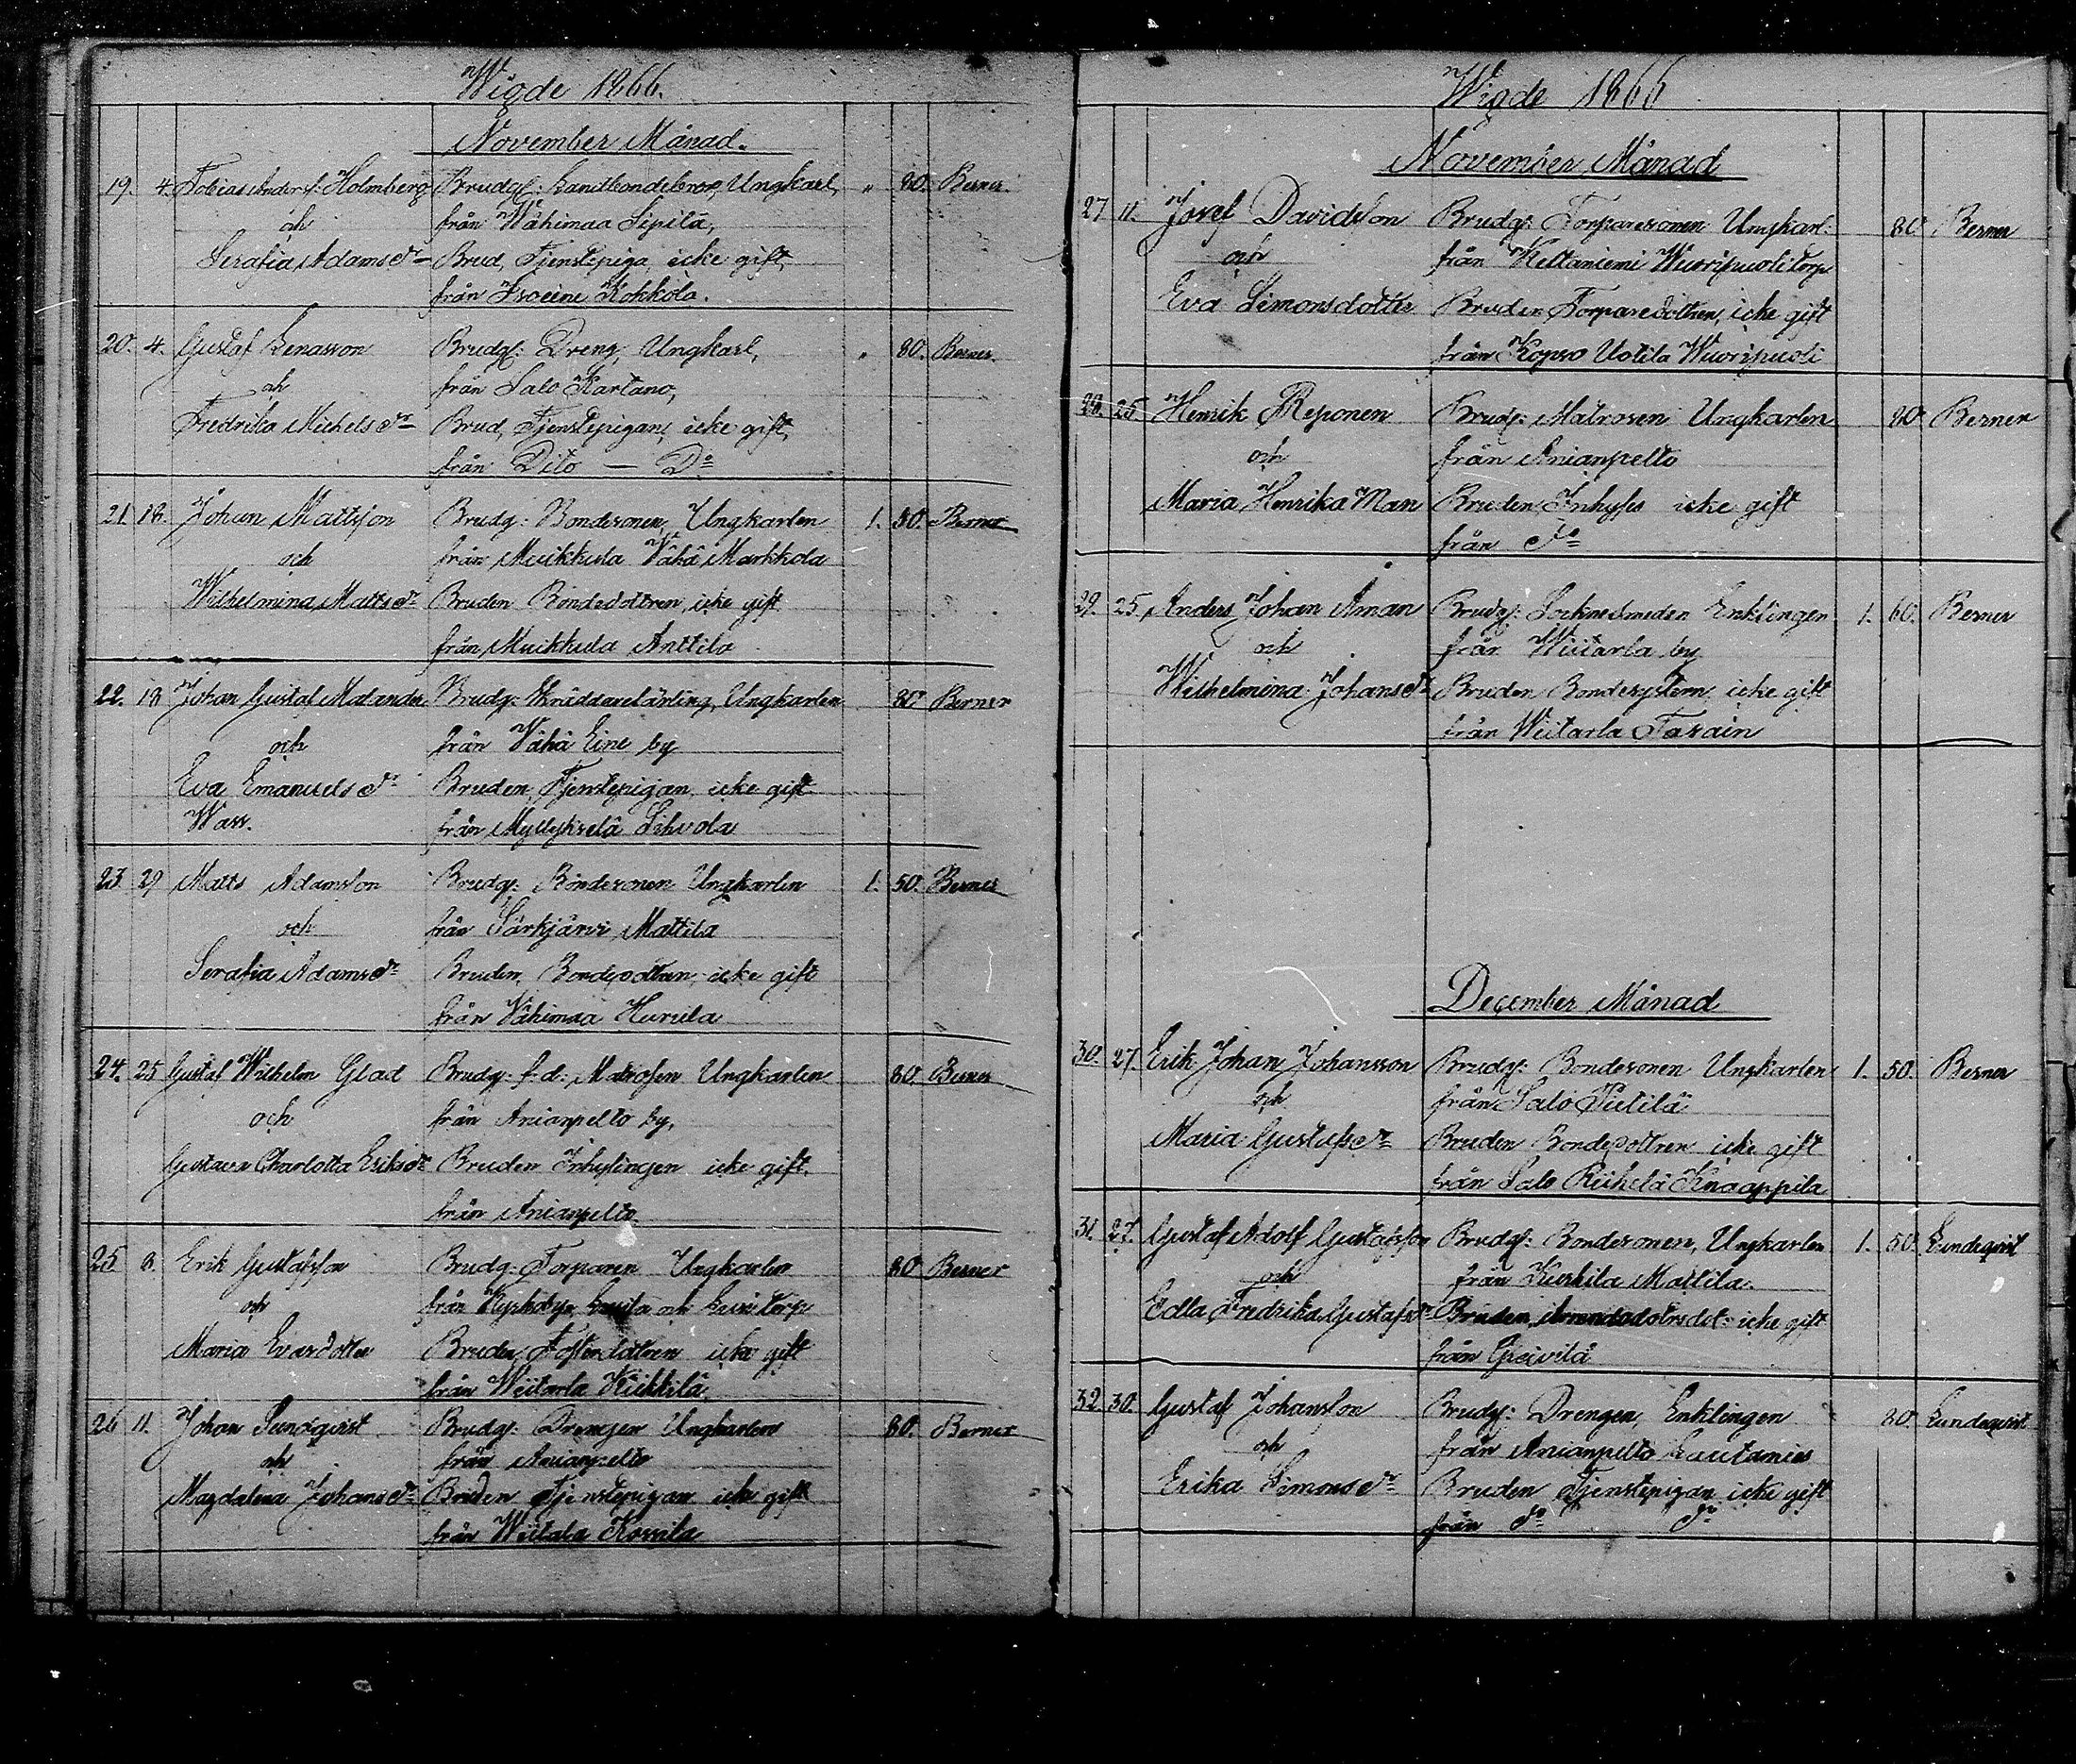 Wigde 1866.
November Månad.
19. 4. Tobias Anders: Holmberg Brudg: Ungkarl, " 80. Berner.
och från Wähimaa Sipilä,
Serafia Adams dr Brud, Tjenstepiga, icke gift,
från Isoeine Kokkola.
20. 4. Gustaf Lenasson Brudg: Dreng, Ungkarl, " 80. Berner.
och från Salo Kartano,
Fredrika Michels dr Brud, Tjenstepigan, icke gift,
från Dito — Do
21. 18. Johan Mattsson Brudg: Bondesonen, Ungkarlen 1. 50. Berner
och från Muikkula Vähä Markkola
Wilhelmina Matts dr Bruden Bondedottren, icke gift
från Muikkula Anttila
22. 18 Johan Gustaf Brudg: Skräddarelärling, Ungkarlen 80 Berner
och från Vähä Eine by
Eva Emanuels dr Bruden, Tjenstepigan icke gift
Wass. från Myllykselä Sihvola
23. 29 Matts Adamsson Brudg: Bondesonen Ungkarlen 1. 50. Berner
och från Särkjärvi Mattila
Serafia Adams dr Bruden, Bondedottren, icke gift
från Vähimaa Hurula
24. 25 Gustaf Wilhelm Glad Brudg: f.d. Matrosen Ungkarlen 80. Berner
och från Anianpelto by,
Gustava Charlotta Eriks dr Bruden Inhyslingen icke gift
från Anianpelto
25 8. Erik Gustafsson Brudg: Torparen Ungkarlen 80 Berner
och från och torp
Maria Evasdotter Bruden Fosterdottren icke gift
från Wiitarla Kiikkilä
26 11. Johan Sundqvist Brudg: Drengen Ungkarlen 80. Berner
och från Anianpelto
Magdalena Johans dr Bruden Tjenstepigan icke gift
från Wiitala Kossila
Wigde 1866
November Månad
27 11. Josef Davidsson Brudg: Torparesonen Ungkarl: 80 Berner
och från Keltaniemi Wuoripuoli torp
Eva Simonsdotter Bruden Torparedottren, icke gift
från Kopso Uotila Wuoripuoli
28. 25 Henrik Reponen Brudg: Matrosen Ungkarlen 80. Berner
och från Anianpelto
Maria Henrika Man Bruden Inhyses icke gift
från do
29. 25. Anders Johan Åman Brudg: Socknesmeden Enklingen 1. 60. Berner
och från Wiitarla by
Wilhelmina Johans dr Bruden Bondesystern, icke gift
från Wiitarla Tarain
December Månad
30. 27. Erik Johan Johansson Brudg: Bondesonen Ungkarlen 1. 50. Berner
och från Salo Pietilä
Maria Gustafs dr Bruden Bondedottren icke gift
från Salo Riihelä Knaappila
31. 27. Gustaf Adolf Gustafsson Brudg: Bondesonen, Ungkarlen 1. 50. Lundeqvist
och från Kurkila Mattila.
Edla Fredrika Gustafs dr Bruden icke gift
från
32 30. Gustaf Johansson Brudg: Drengen, Enklingen 80. Lundeqvist
och från Anianpelto Lautamies
Erika Simons dr Bruden Tjenstepigan icke gift
från do do